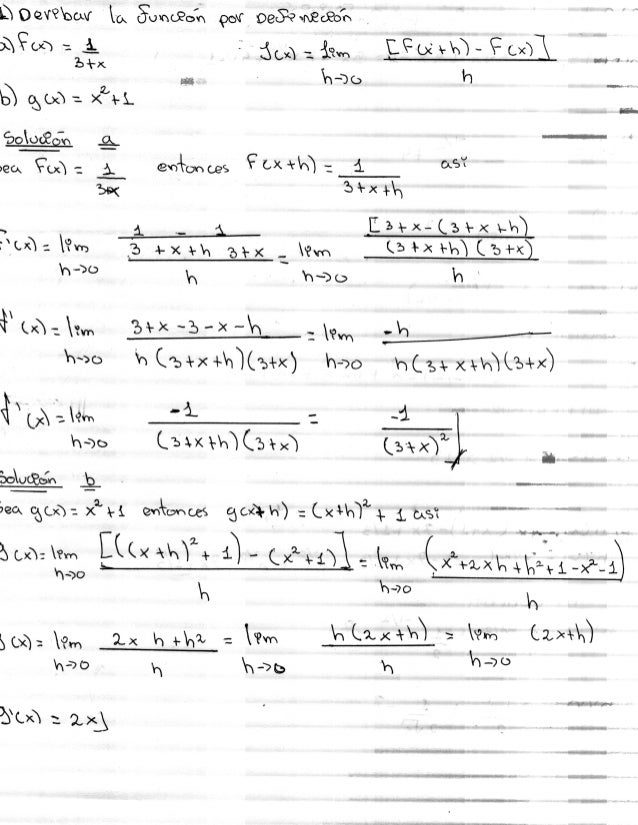 1) Derebar la Junceón por Defeneceón
a) f(x) = 1/(3+x) ∴ J(x) = lem h→0 [F(x+h) - F(x)]/h
b) g(x) = x²+1
Soluceón a
ea F(x) = 1/(3+x) entonces F(x+h) = 1/(3+x+h) así
F'(x) = lem h→0 (1/(3+x+h) - 1/(3+x))/h = lem h→0 ([3+x-(3+x+h)/((3+x+h)(3+x)))/h
f'(x) = lem h→0 (3+x-3-x-h)/(h(3+x+h)(3+x)) = lem h→0 -h/(h(3+x+h)(3+x))
f'(x) = lem h→0 -1/((3+x+h)(3+x)) = -1/(3+x)²
Soluceón b
ea g(x) = x²+1 entonces g(x+h) = (x+h)² + 1 así
g(x) = lem h→0 [((x+h)² + 1) - (x²+1)]/h = lem h→0 (x²+2xh+h²+1-x²-1)/h
g(x) = lem h→0 (2xh+h²)/h = lem h→0 h(2x+h)/h = lem h→0 (2x+h)
g'(x) = 2x